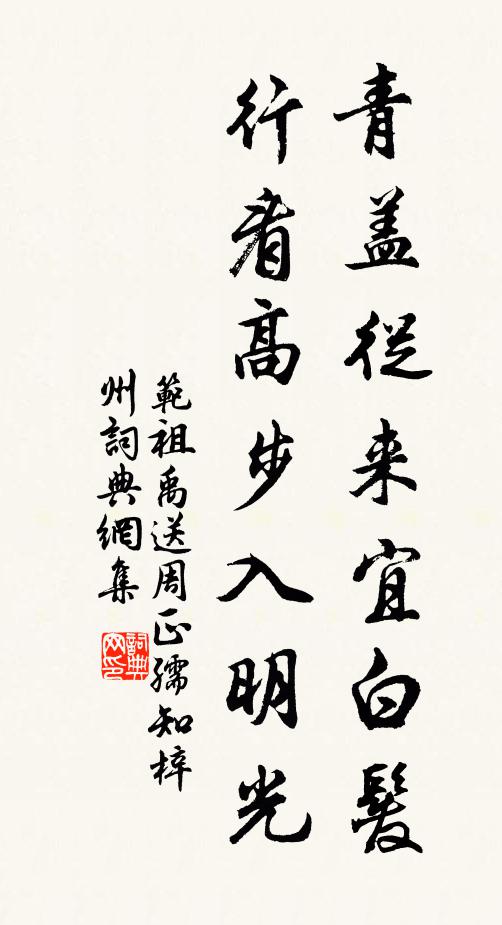 青蓋從来宜白髮
行看高步入明光
範祖禹送周正孺知梓
州詞典網集
詞典网印